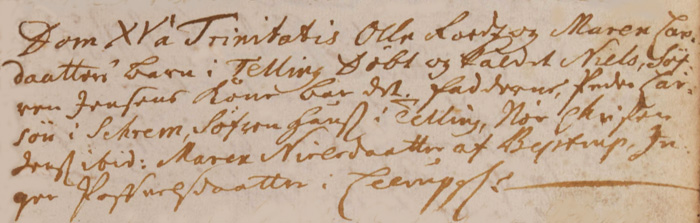 Dom XV à Trinitatis Olle Kordz og Maren Lar-
daatters barn i Telling Døbt og kaldet Niels, Søf-
ren Jensens Kone bar det. fadderne, Peder Lar-
søn i Schrem, Søfren Hanß i Telling, Nør Christen
Jenß ibid: Maren Nielsdaatter af Bestrup, In-
ger Poffuelsdaatter i